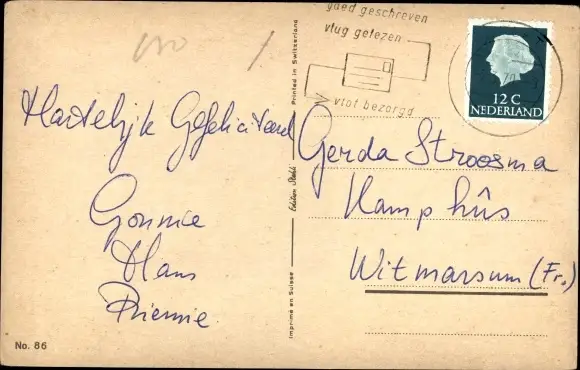 goed geschreven
vlug gelezen
vlot bezorgd
12 C
NEDERLAND
Hartelijk Gefeliciteerd
Gonnie
Hans
Riemie
Gerda Stroosma
Kamphûs
Witmarsum (Fr.)
Printed in Switzerland
Edition Stehli
Imprimé en Suisse
No. 86